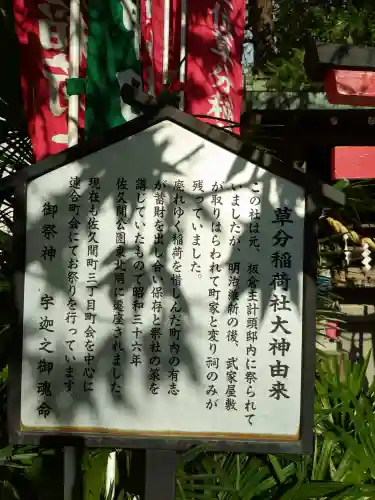 草分稲荷社大神由来
この社は元、板倉主計頭邸内に祭られて
いましたが、明治維新の後、武家屋敷
が取りはらわれて町家と変り祠のみが
残っていました。
壊れゆく稲荷を惜しんだ町内の有志
が蓄財を出し合い保存と祭社の策を
講じていたもので昭和三十六年
佐久間公園東北隅に遷座されました
現在も佐久間町三丁目町会を中心に
連合町会にてお祭りを行っています
御祭神 宇迦之御魂命